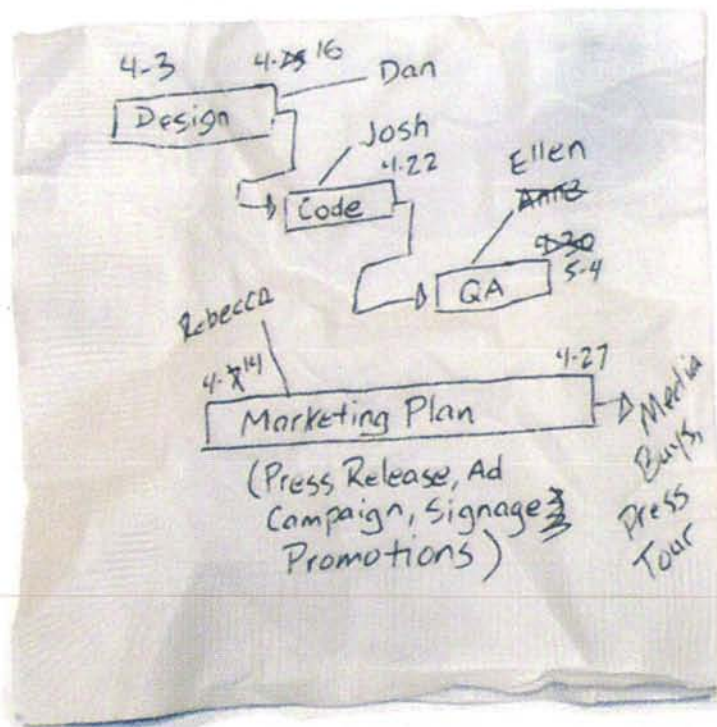 4-3 4-16
Dan
Design
Josh
4-22
Ellen
Code
QA
5-4
Rebecca
4-14
4-27
Marketing Plan
Media
Buys,
Press
Tour
(Press Release, Ad
Campaign, Signage
Promotions)